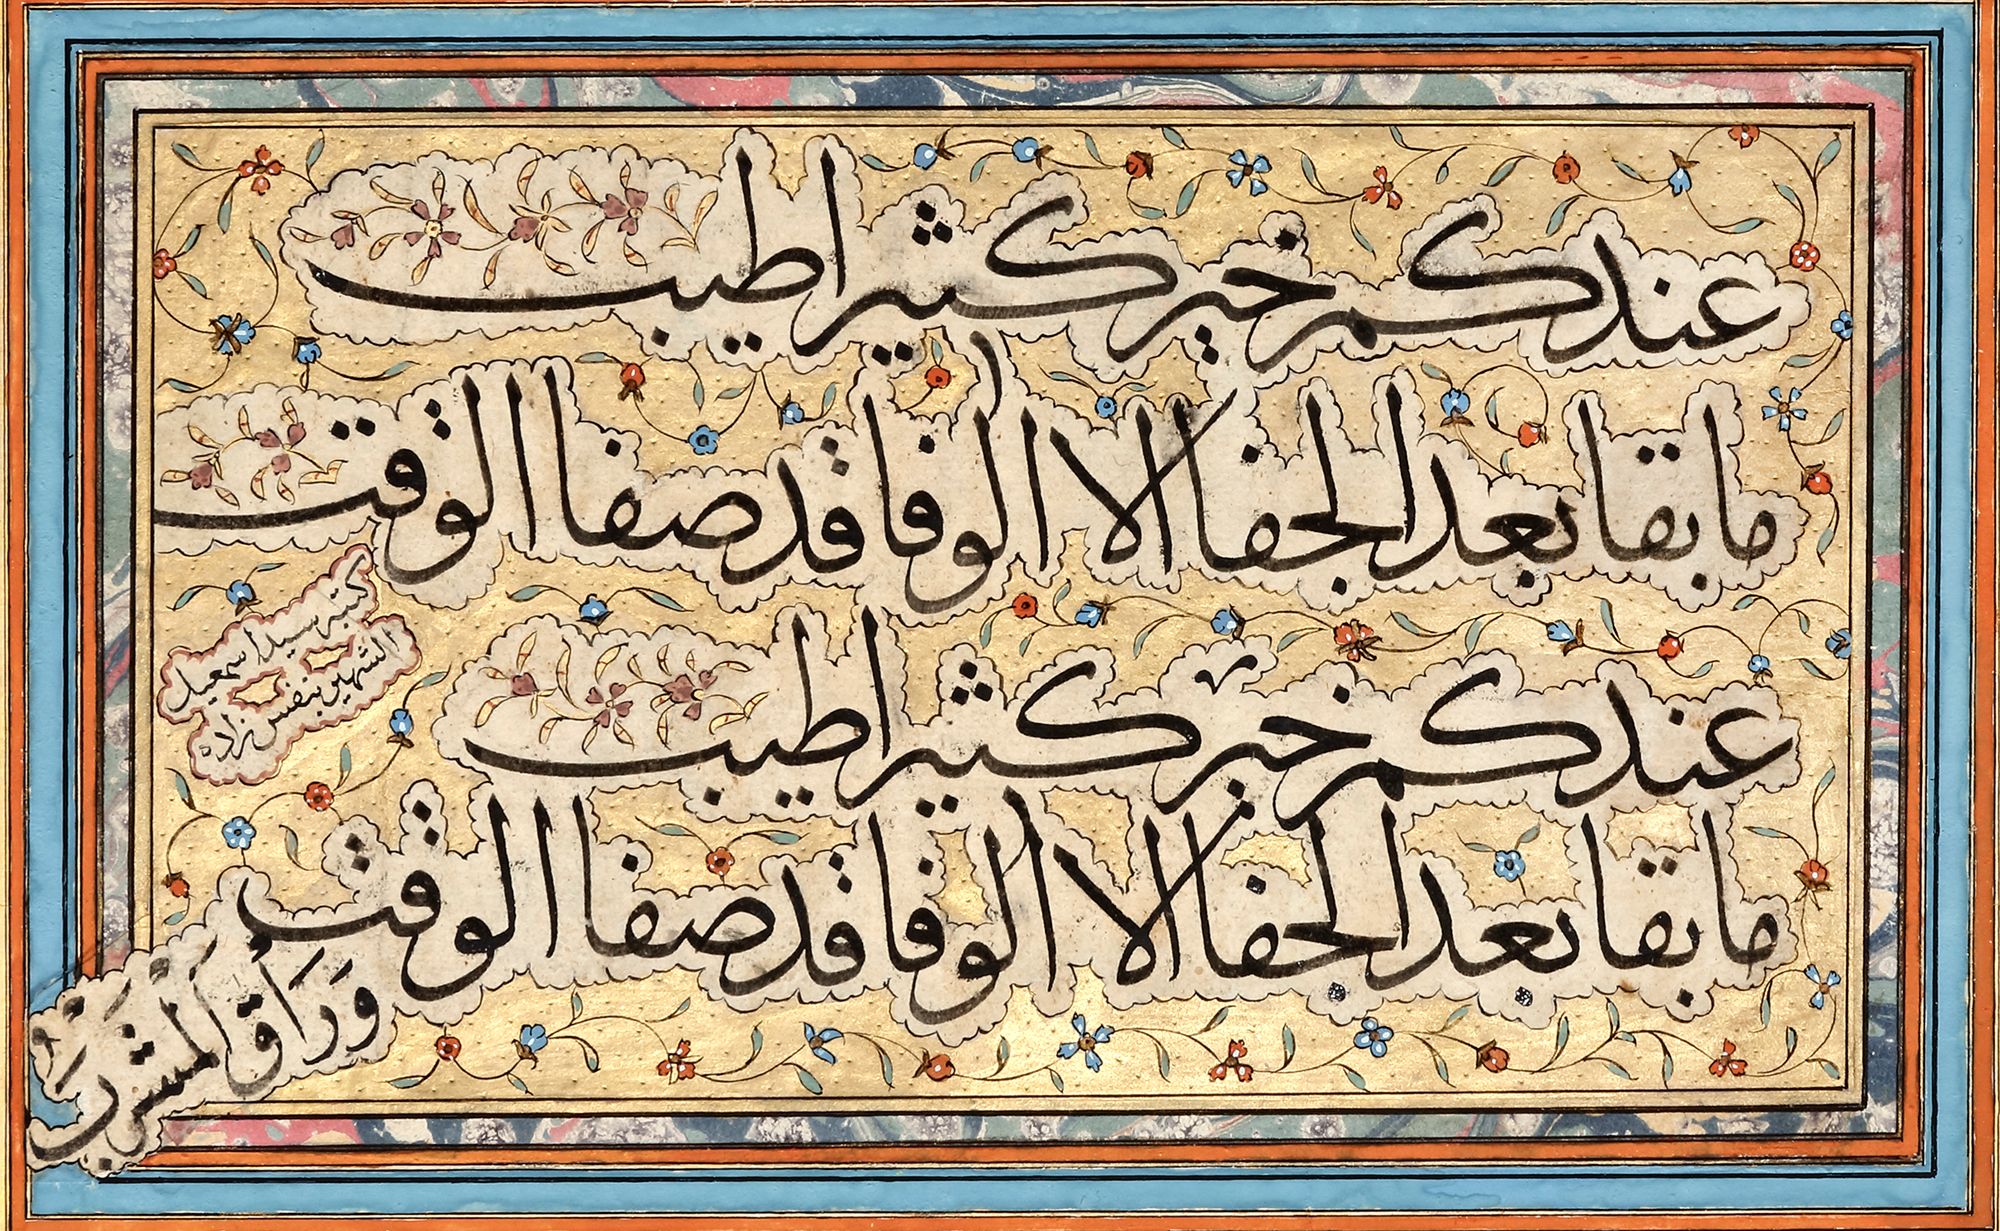 عندكم خير كثيرا طيب
ما بقا بعد الجفا الا الوفا قد صفا الوقت
عندكم خير كثيرا طيب
ما بقا بعد الجفا الا الوفا قد صفا الوقت
وراق المشرب
كتبه سيد اسمعيل
الشهير بنفس زاده